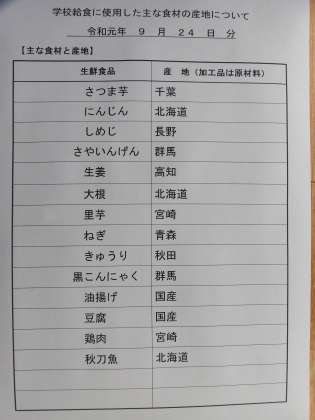 学校給食に使用した主な食材の産地について
令和元年 9 月 24 日 分
【主な食材と産地】
生鮮食品 産 地（加工品は原材料）
さつま芋 千葉
にんじん 北海道
しめじ 長野
さやいんげん 群馬
生姜 高知
大根 北海道
里芋 宮崎
ねぎ 青森
きゅうり 秋田
黒こんにゃく 群馬
油揚げ 国産
豆腐 国産
鶏肉 宮崎
秋刀魚 北海道